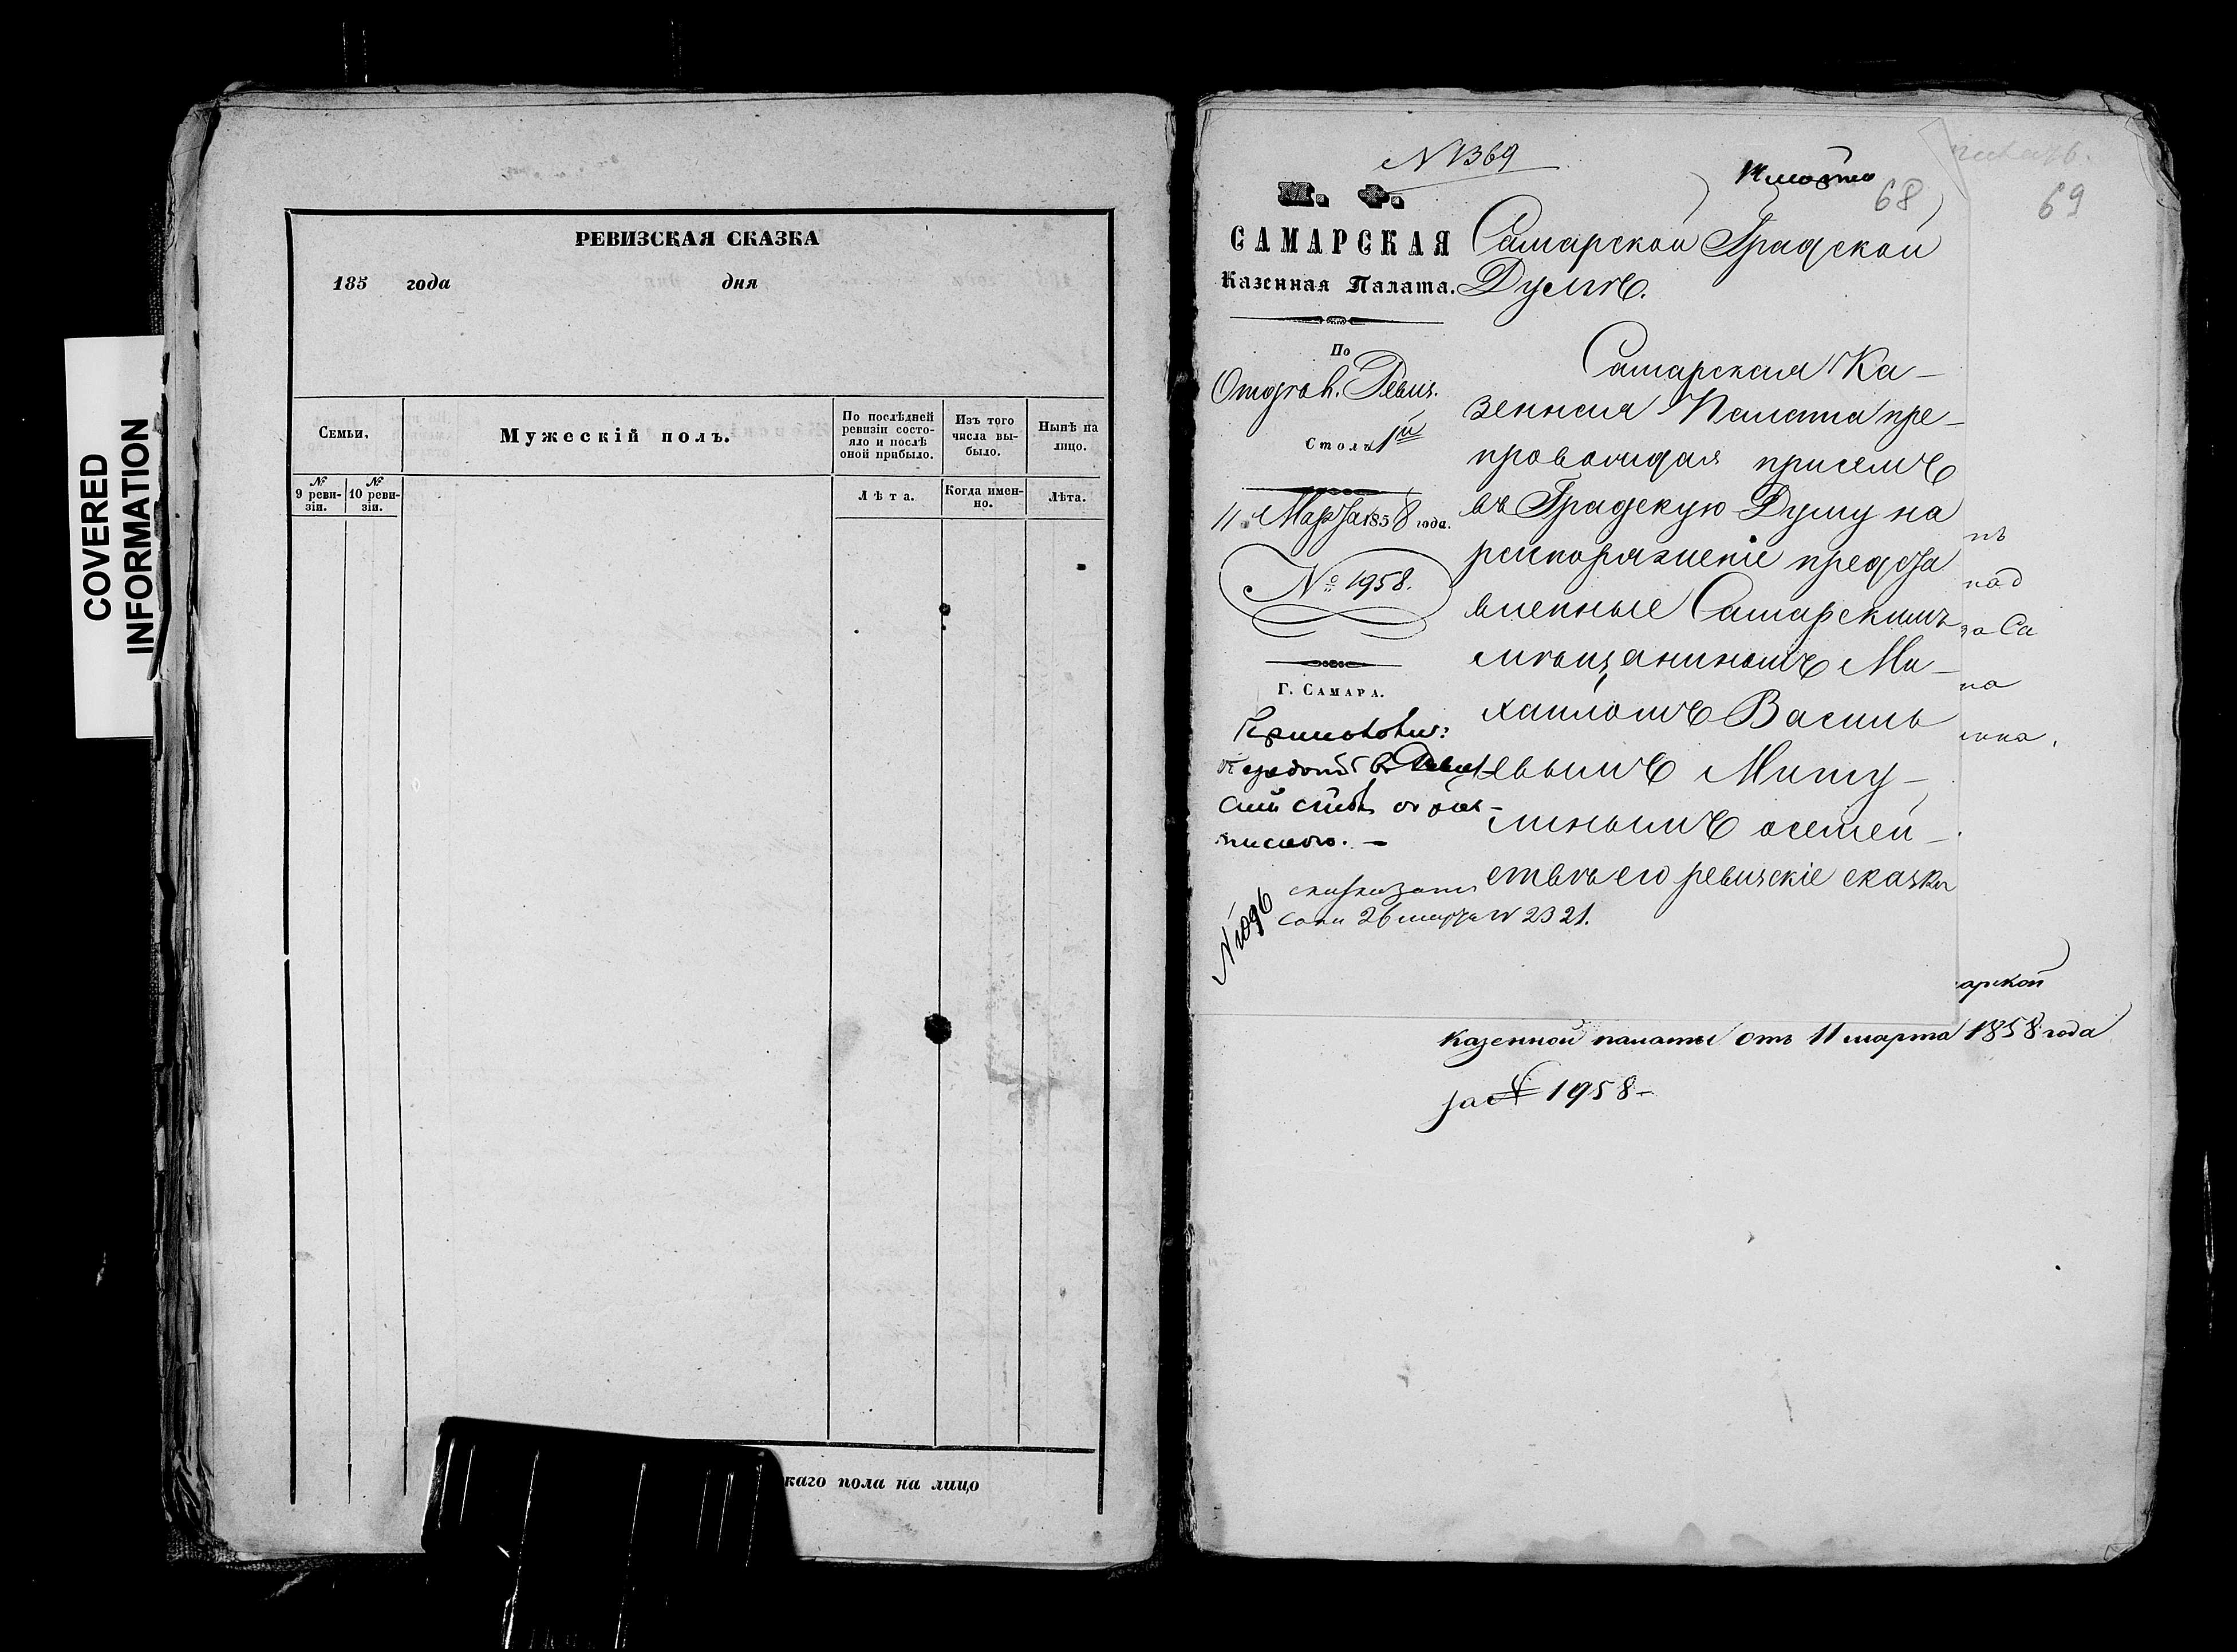 COVERED
INFORMATION
РЕВИЗСКАЯ СКАЗКА
185 года дня
Семьи.
Мужескій полъ.
По послѣдней ревизіи состояло и послѣ оной прибыло.
Изъ того числа выбыло.
Нынѣ на лицо.
№ 9 ревизіи.
№ 10 ревизіи.
Лѣта.
Когда именно.
Лѣта.
каго пола на лицо
N 1369
68
69
М. Ф.
САМАРСКАЯ
Казенная Палата.
По
Отдѣл. Ревиз.
Столъ 1й
11 Марта 1858 года.
№ 1958.
Г. САМАРА.
Самарской Градской
Думѣ.
Самарская Ка-
зенная Палата пре-
провождая присемъ
въ Градскую Думу на
распоряженіе предста
вленные Самарскимъ
мѣщаниномъ Ми-
хаиломъ Василь
евымъ Миту-
линымъ осемей-
ствѣ его ревизскіе сказки
26 марта N 2321.
N 1096
пъ
под
за Са
на
арской
казенной палаты отъ 11 марта 1858 года
за № 1958-